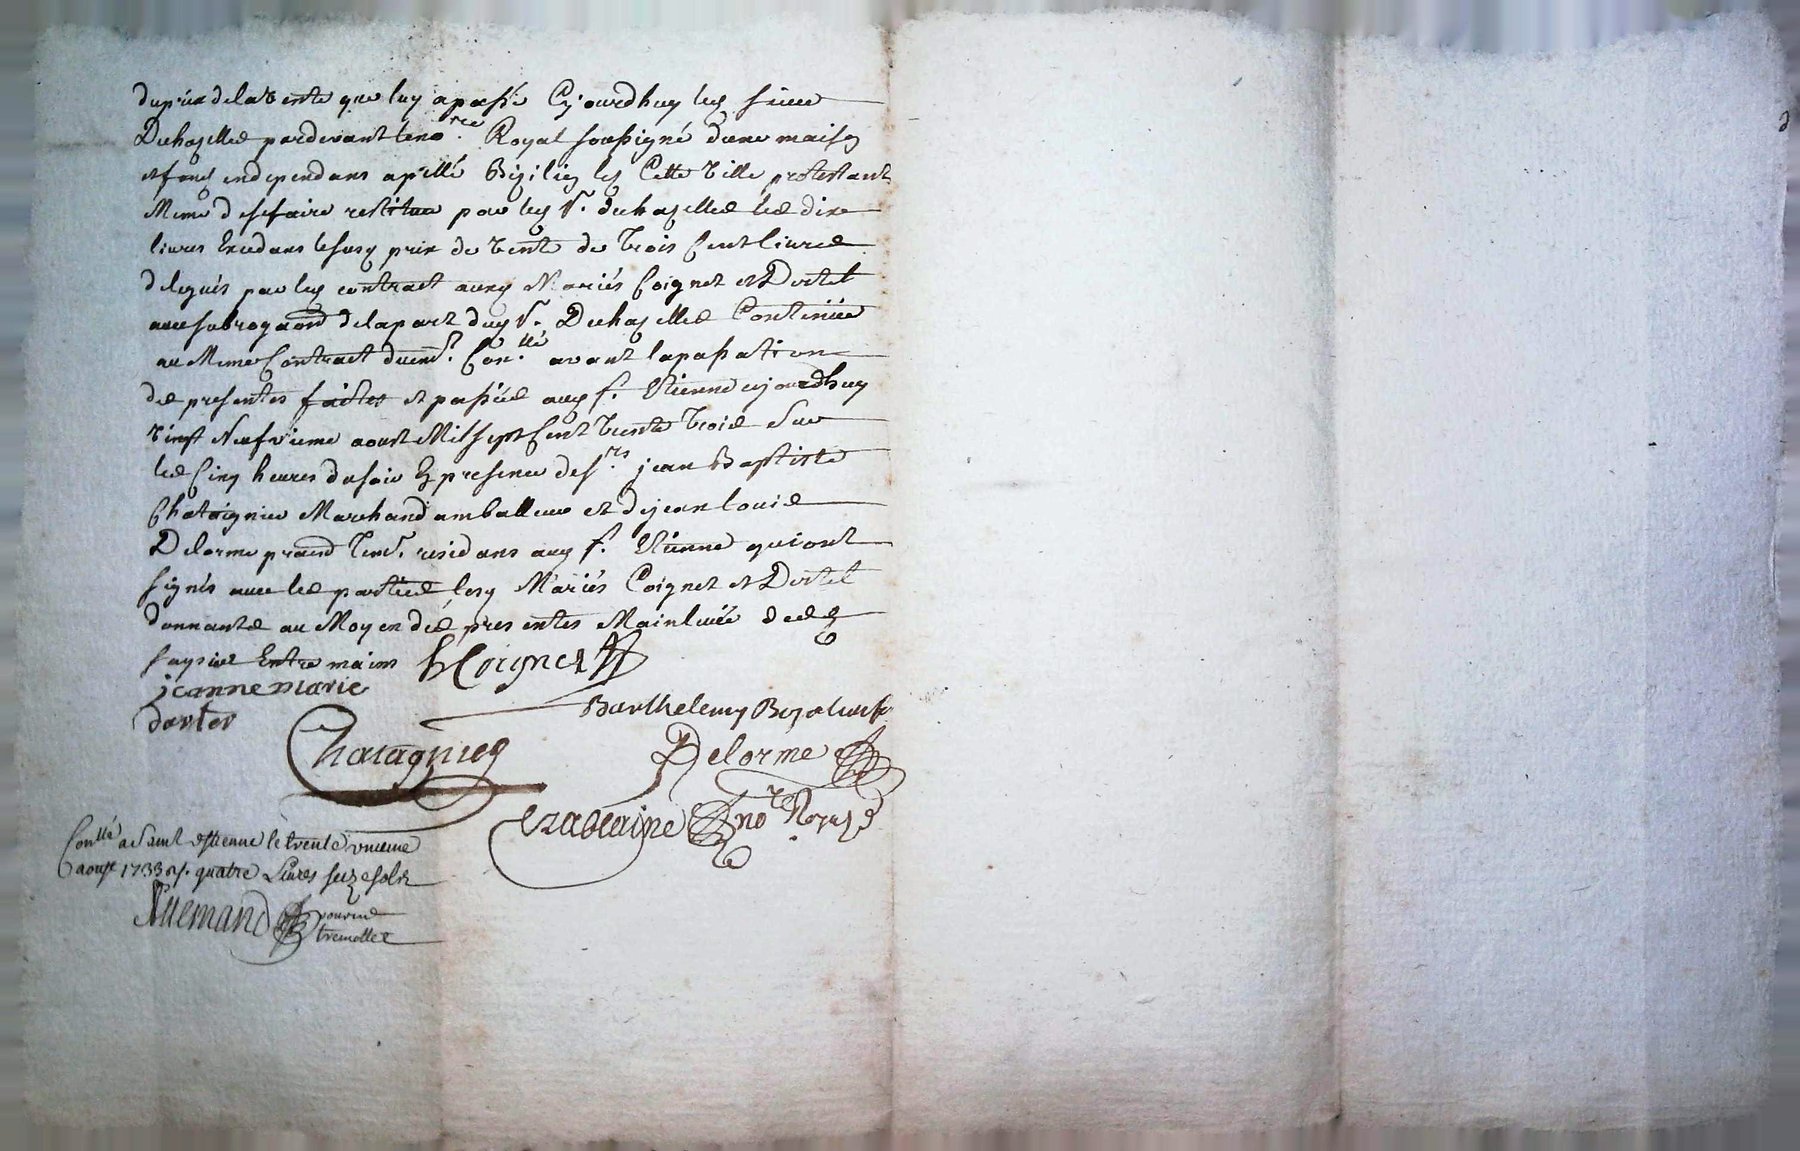 du prix de la vente que luy a passé Cejourdhuy led sieur
Dechazelles pardevant le no.re Royal soussigné d'une maison
et fonds independans apellé en Cette ville protestant
Meme de se faire restituer par led Sr. dechazelles les dix
livres Excedans led prix de vente de trois Cent livres
delegués par led contract auxd Mariés Coignet et Dortel
avec subrogaon de la part dud Sr. Dechazelles Contenüe
au Meme Contract Con.llé avant la passation
des presentes faictes et passées aud St. Etienne cejourdhuy
vingt Neufvieme aoust Mil sept Cent trente trois Sur
les Cinq heures du soir En presence de srs. jean Baptiste
Chataignier Marchand amballeur et de jean louis
Delorme residans aud St. Etienne qui ont
signés avec les parties lesd Mariés Coignet et Dortel
donnants au Moyen des presentes Mainlevée des
saysies Entre mains h Coignet
jeanne marie
dortel
Barthelemy
Chataignier Delorme
no.re Royal
Con.llé a Saint estienne le trente unieme
aoust 1733 R. quatre Livres seize sols
Allemand pour me
tremollet